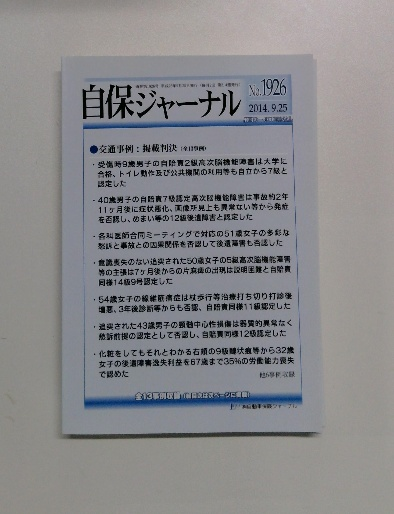 自保ジャーナル
No.1926
2014.9.25
●交通事例：掲載判決（全13事例）
・受傷時9歳男子の自賠責2級高次脳機能障害は大学に
合格、トイレ動作及び公共機関の利用等も自立から7級と
認定した
・40歳男子の自賠責7級認定高次脳機能障害は事故約2年
11ヶ月後に症状悪化、画像所見上も異常ない等から発症
を否認し、めまい等の12級後遺障害と認定した
・各科医師合同ミーティングで対応の51歳女子の多彩な
愁訴と事故との因果関係を否認して後遺障害も否認した
・意識喪失のない追突された50歳女子の5級高次脳機能障害
等の主張は7ヶ月後からの片麻痺の出現は説明困難と自賠責
同様14級9号認定した
・54歳女子の線維筋痛症は杖歩行等治療打ち切り打診後
増悪、3年後診断等からも否認、自賠責同様11級認定した
・追突された43歳男子の頸髄中心性損傷は器質的異常なく
愁訴前提の認定として否認し、自賠責同様12級認定した
・化粧をしてもそれとわかる右頬の9級醜状痕等から32歳
女子の後遺障害逸失利益を67歳まで35％の労働能力喪失
で認めた
他6事例収録
全13事例収録